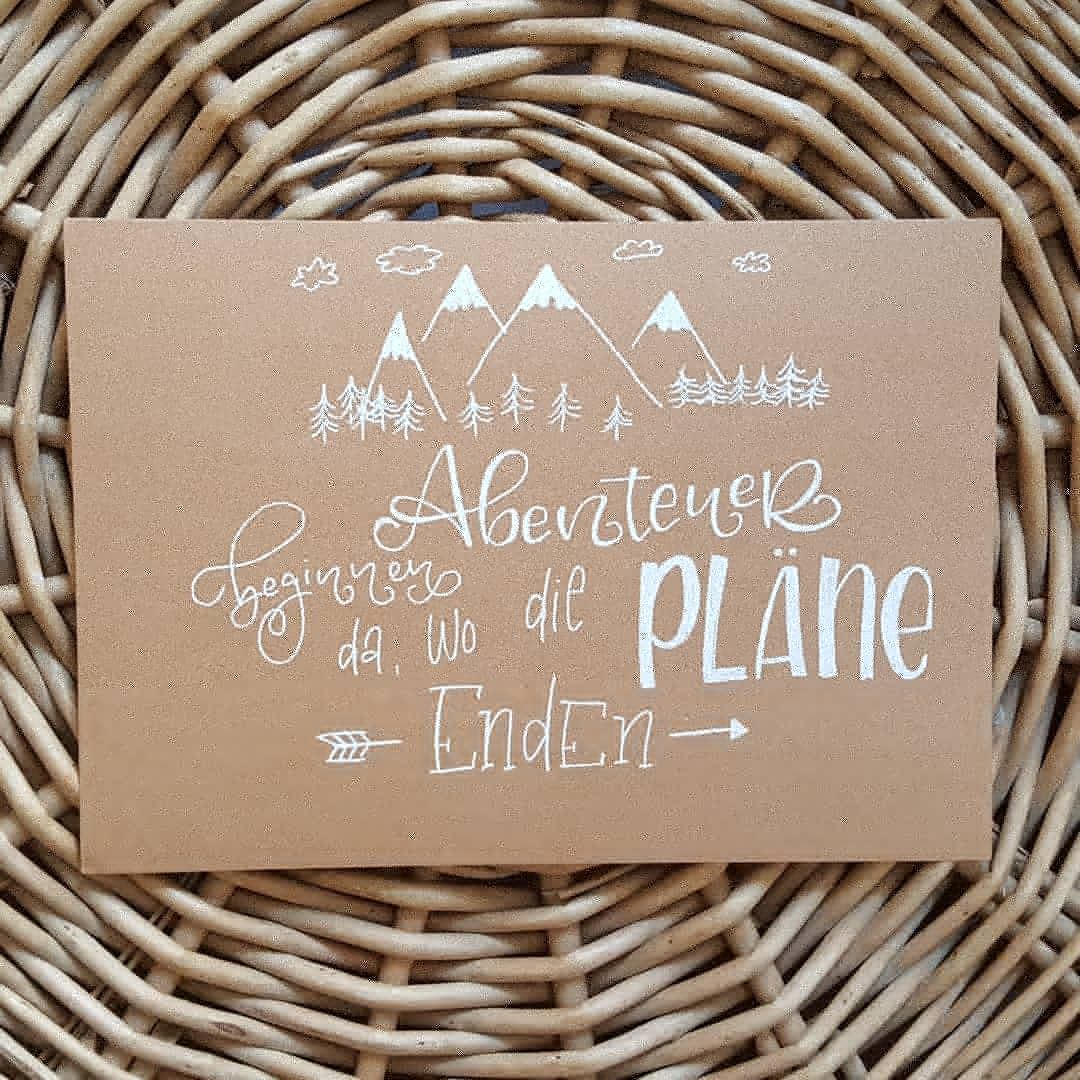 Abenteuer
beginnen
da, wo die PLÄNE
EndEn